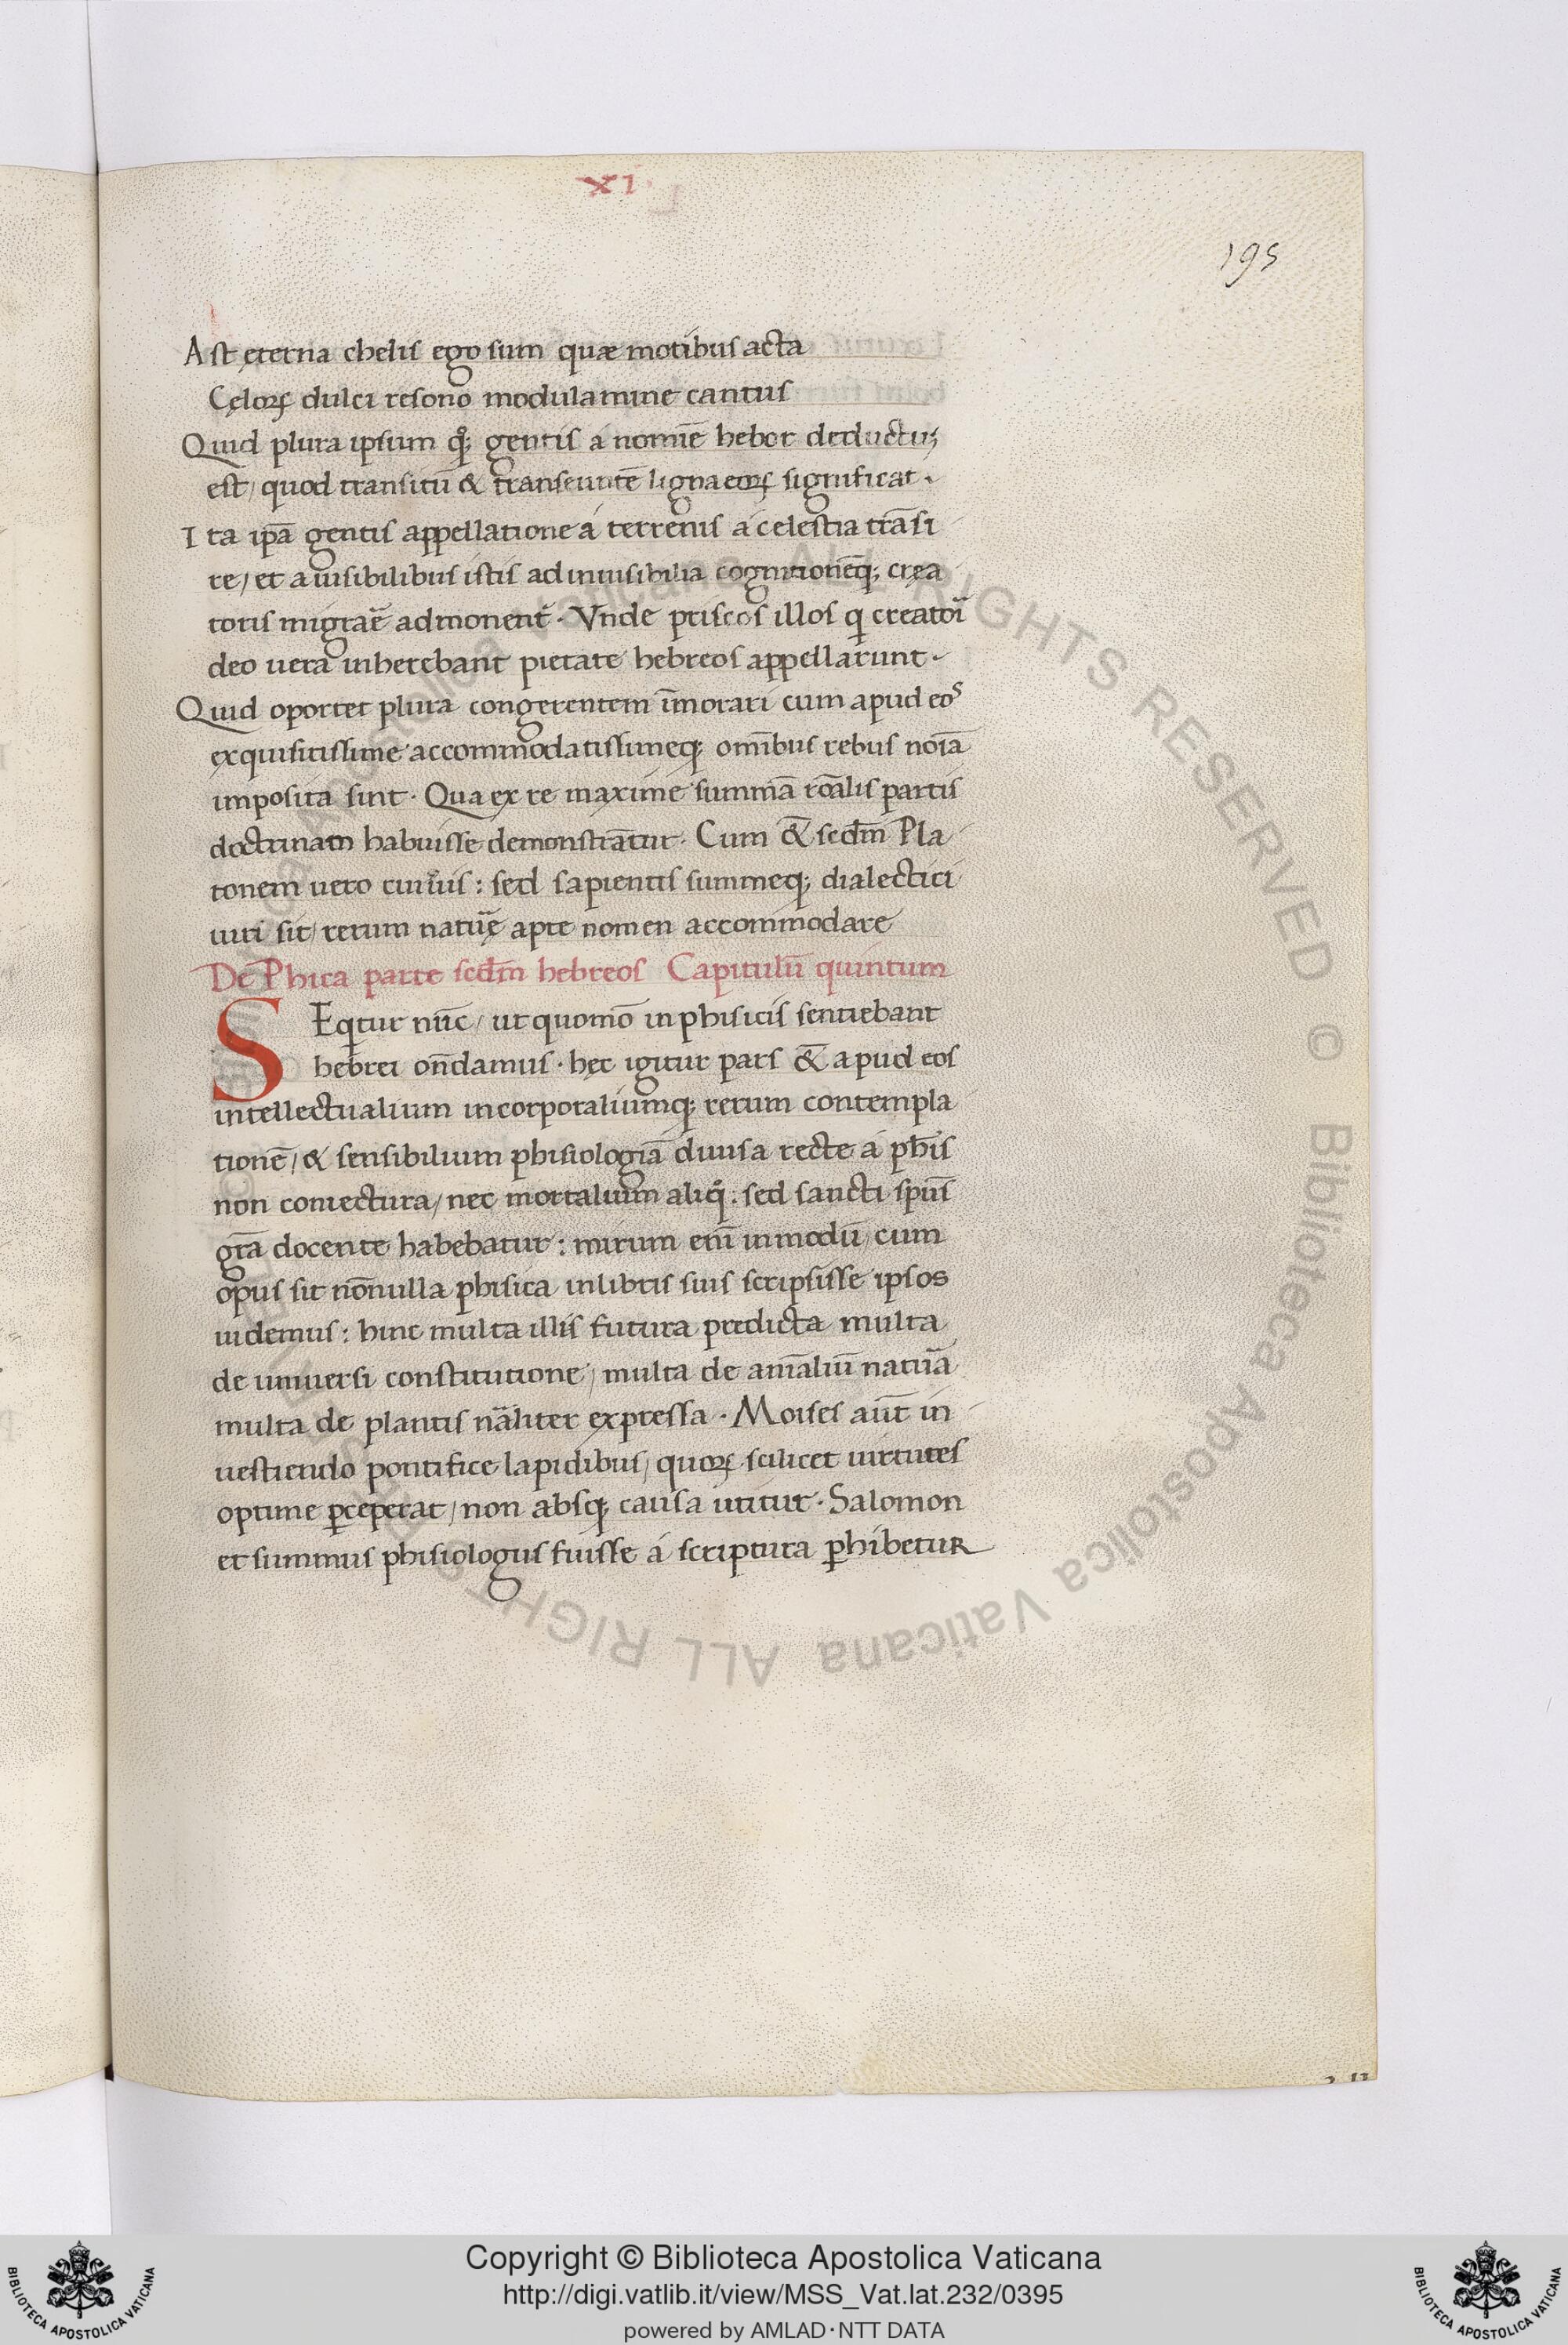 XI.
195
Ast ęterna chelis ego sum quæ motibus acta
Cęloꝝ dulci resono modulamine cantus
Quid plura ipsum qͦꝫ gentis á nomiē heber deductuꝫ
est/ quod transitū & transeuntē lignaeoꝝ significat.
Ita ipā gentis appellatione á terrenis á celestia trāsi
re/ et a uisibilibus istis ad inuisibilia cognitionēqꝫ crea
toris migrar̄e admonent᷑. Vnde priscos illos q creatoī
deo uera inherebant pietate hebreos appellarunt.
Quid oportet plura congerentem īmorari cum apud eos
exquisitissime accommodatissimeqꝫ om̄ibus rebus noīa
imposita sint. Qua ex re maxime summā rōalis partis
doctrinam habuisse demonstrātur. Cum &̄ sedm̄ Pla
tonem uero cuiuis: sed sapientis summeqꝫ dialectici
uiri sit/ rerum natuę̄ apte nomen accommodare
De Phica parte sedm̄ hebreos Capitulū quintum
SEqtur nūc/ ut quomō in phisicis sentiebant
hebrei on̄damus. hęc igitur pars &̄ apud eos
intellectualium incorporaliumqꝫ rerum contempla
tionē/ & sensibilium phisiologiā diuisa recte á ph̄is
non coniectura/ nec mortalium aliqͦ: sed sancti sp̄us
grā docente habebatur: mirum enī in modū/ cum
opus sit nōnulla phisica in libris suis scripsisse ipsos
uidemus: hinc multa illis futura predicta multa
de uniuersi constitutione/ multa de aniālium̄ natuā
multa de plantis nāliter expressa. Moises aūt in
uestiendo pontifice lapidibus/ quoꝝ scilicet uirtutes
optime ꝑceperat/ non absqꝫ causa utitur. Salomon
et summus phisiologus fuisse á scriptura ꝑhibetur
Copyright © Biblioteca Apostolica Vaticana
http://digi.vatlib.it/view/MSS_Vat.lat.232/0395
powered by AMLAD·NTT DATA
BIBLIOTECA APOSTOLICA VATICANA
BIBLIOTECA APOSTOLICA VATICANA